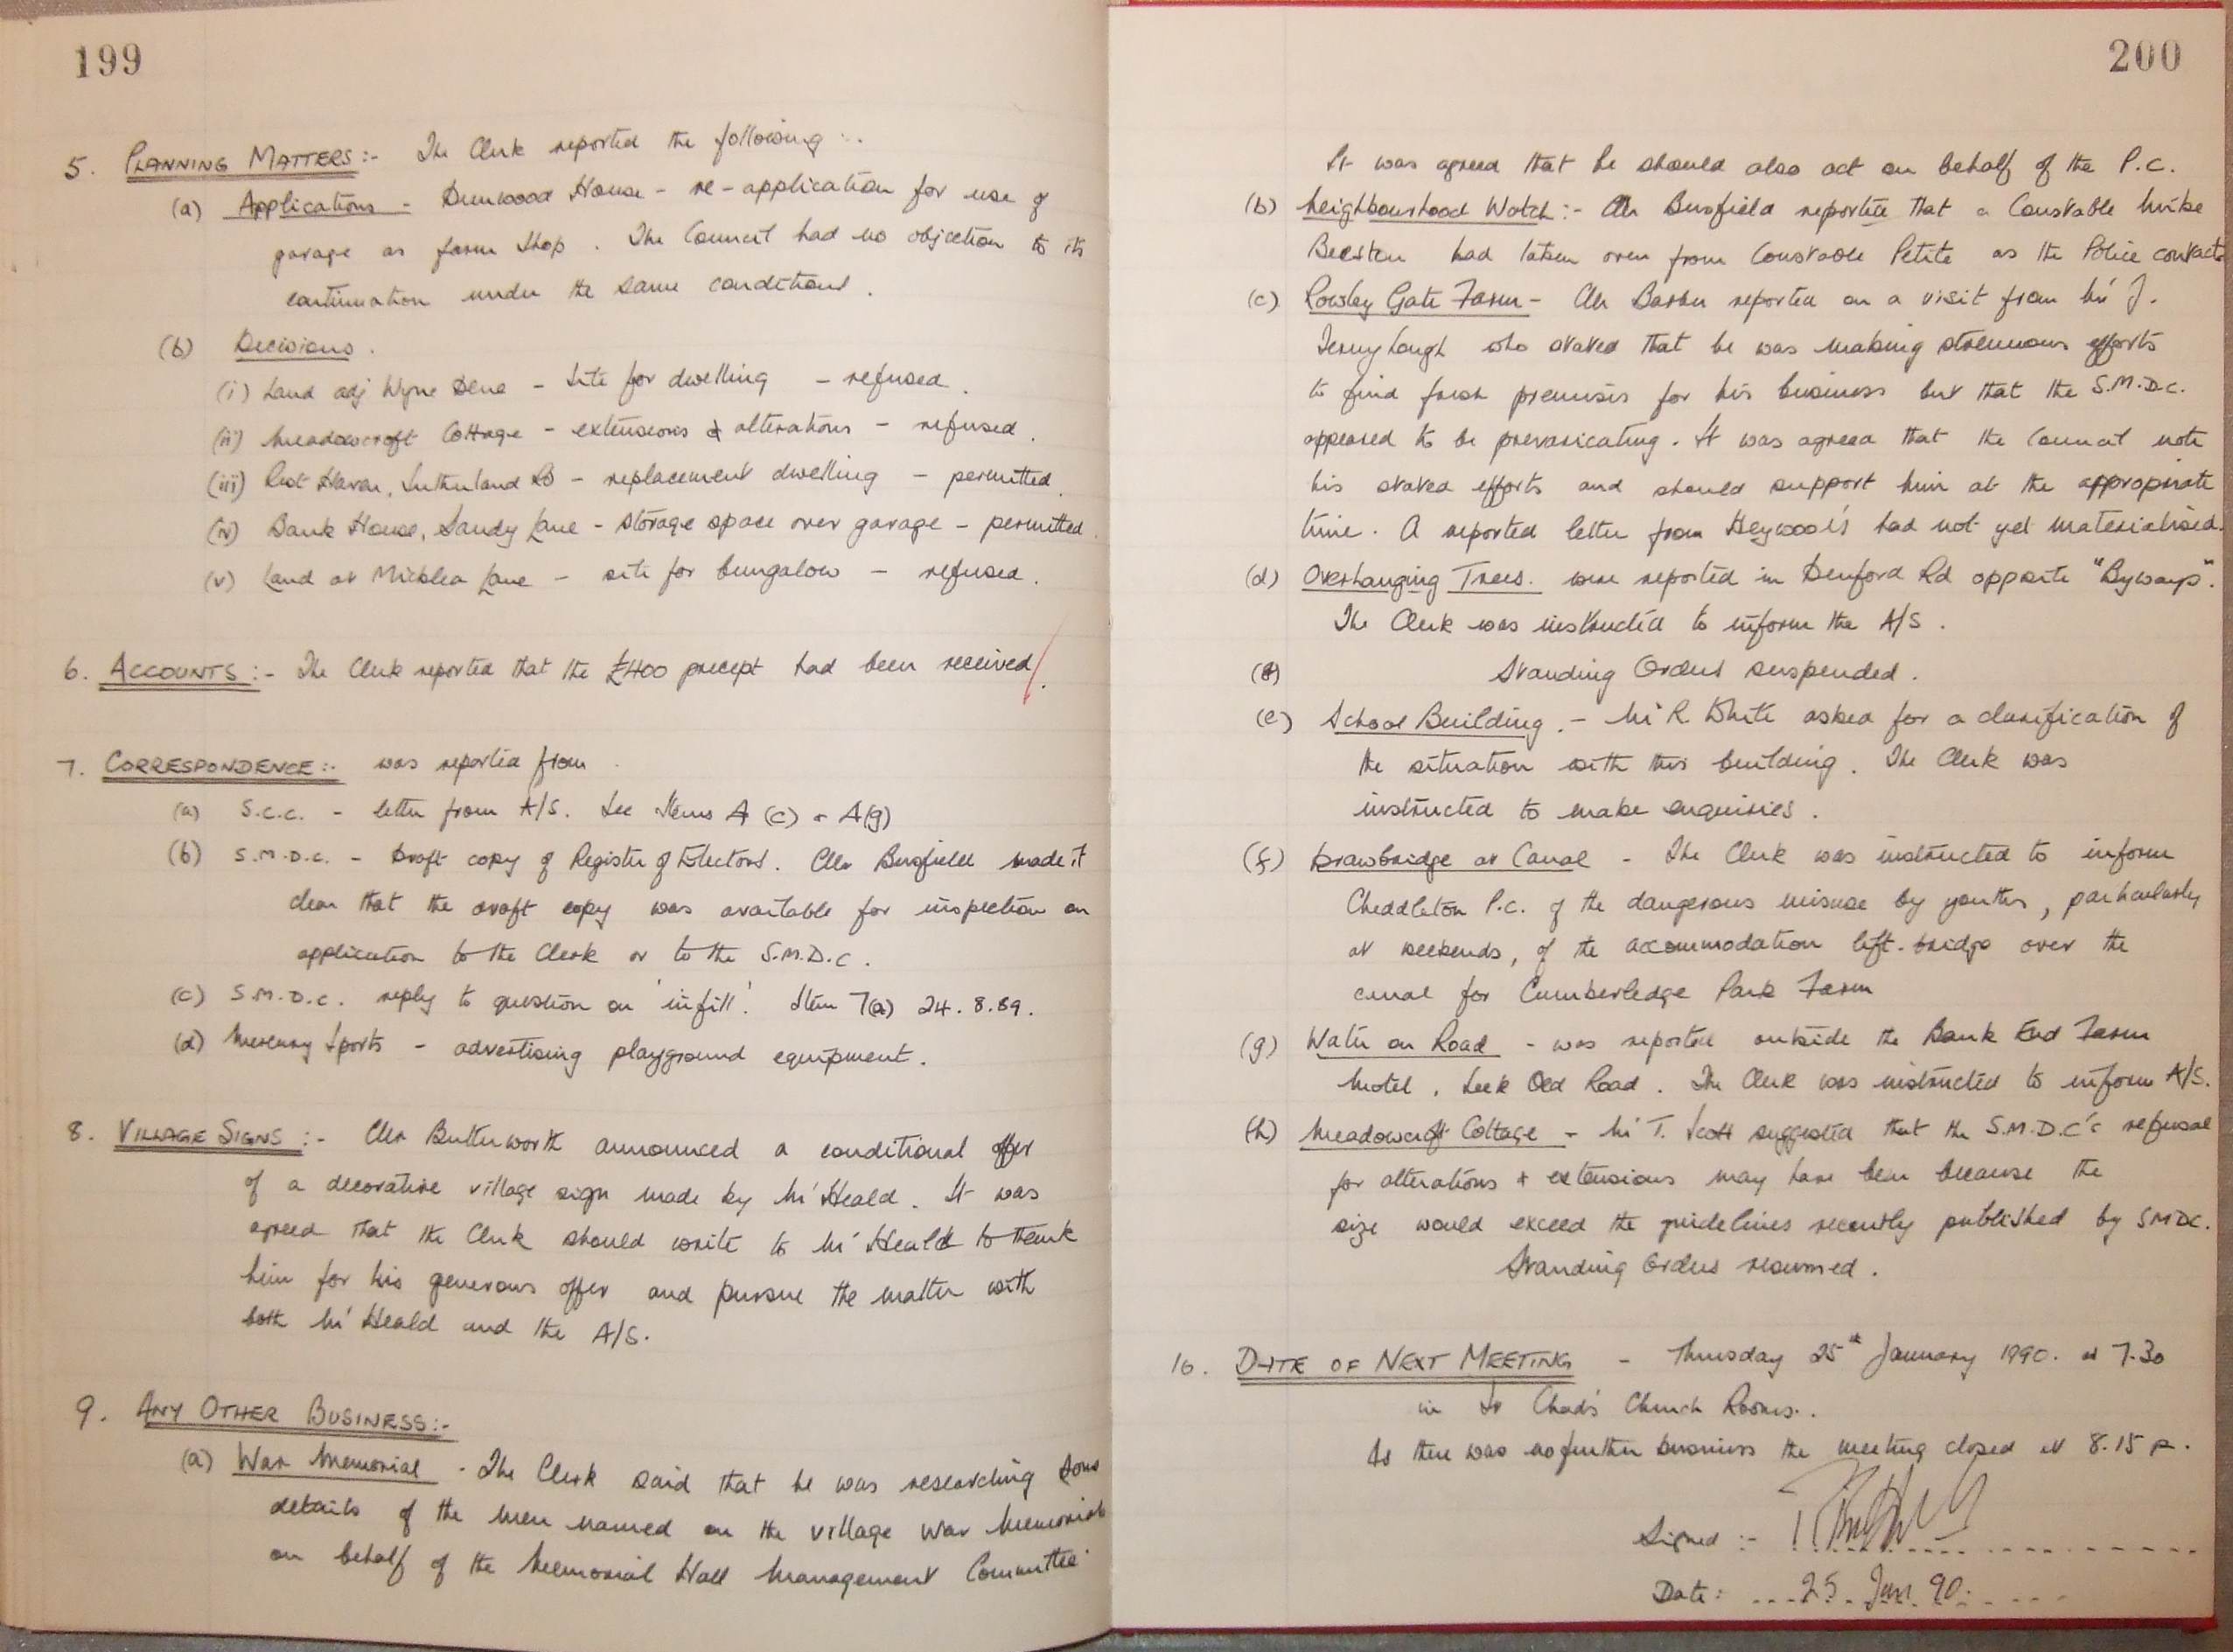 199
5. PLANNING MATTERS :- The Clerk reported the following :-
(a) Applications - Dunwood House - re-application for use of
garage as farm shop. The Council had no objection to its
continuation under the same conditions.
(b) Decisions.
(i) Land adj Wyne Dene - site for dwelling - refused.
(ii) Meadowcroft Cottage - extensions & alterations - refused.
(iii) Rest Haven, Sutherland Rd - replacement dwelling - permitted.
(iv) Bank House, Sandy Lane - storage space over garage - permitted.
(v) Land at Micklea Lane - site for bungalow - refused.
6. ACCOUNTS :- The Clerk reported that the £400 precept had been received.
7. CORRESPONDENCE :- was reported from
(a) S.C.C. - letter from A/S. See Items A (c) + A(g)
(b) S.M.D.C. - Draft copy of Register of Electors. Cllr Busfield made it
clear that the draft copy was available for inspection on
application to the Clerk or to the S.M.D.C.
(c) S.M.D.C. reply to question on 'infill'. Item 7(a) 24.8.89.
(d) Mercury Sports - advertising playground equipment.
8. VILLAGE SIGNS :- Cllr Butterworth announced a conditional offer
of a decorative village sign made by Mr Heald. It was
agreed that the Clerk should write to Mr Heald to thank
him for his generous offer and pursue the matter with
both Mr Heald and the A/S.
9. ANY OTHER BUSINESS :-
(a) War Memorial - The Clerk said that he was researching some
details of the men named on the village War Memorial
on behalf of the Memorial Hall Management Committee.
200
It was agreed that he should also act on behalf of the P.C.
(b) Neighbourhood Watch :- Cllr Busfield reported that a Constable Mike
Beeston had taken over from Constable Petite as the Police contact.
(c) Rowley Gate Farm - Cllr Barber reported on a visit from Mr J.
Fernyhough who stated that he was making strenuous efforts
to find fresh premises for his business but that the S.M.D.C.
appeared to be prevaricating. It was agreed that the Council note
his stated efforts and should support him at the appropriate
time. A reported letter from Heywood's had not yet materialised.
(d) Overhanging Trees. were reported in Denford Rd opposite "Byways".
The Clerk was instructed to inform the A/S.
(e) Standing Orders suspended.
(e) School Building. - Mr R. White asked for a clarification of
the situation with this building. The Clerk was
instructed to make enquiries.
(f) Drawbridge at Canal - The Clerk was instructed to inform
Cheddleton P.C. of the dangerous misuse by youths, particularly
at weekends, of the accommodation lift-bridge over the
canal for Cumberledge Park Farm
(g) Water on Road - was reported outside the Bank End Farm
Motel, Leek Old Road. The Clerk was instructed to inform A/S.
(h) Meadowcroft Cottage - Mr T. Scott suggested that the S.M.D.C's refusal
for alterations & extensions may have been because the
size would exceed the guidelines recently published by SMDC.
Standing Orders resumed.
10. DATE OF NEXT MEETING - Thursday 25th January 1990. at 7.30
in St Chad's Church Rooms.
As there was no further business the meeting closed at 8.15 p.
Signed :-
Date: 25 Jan 90.